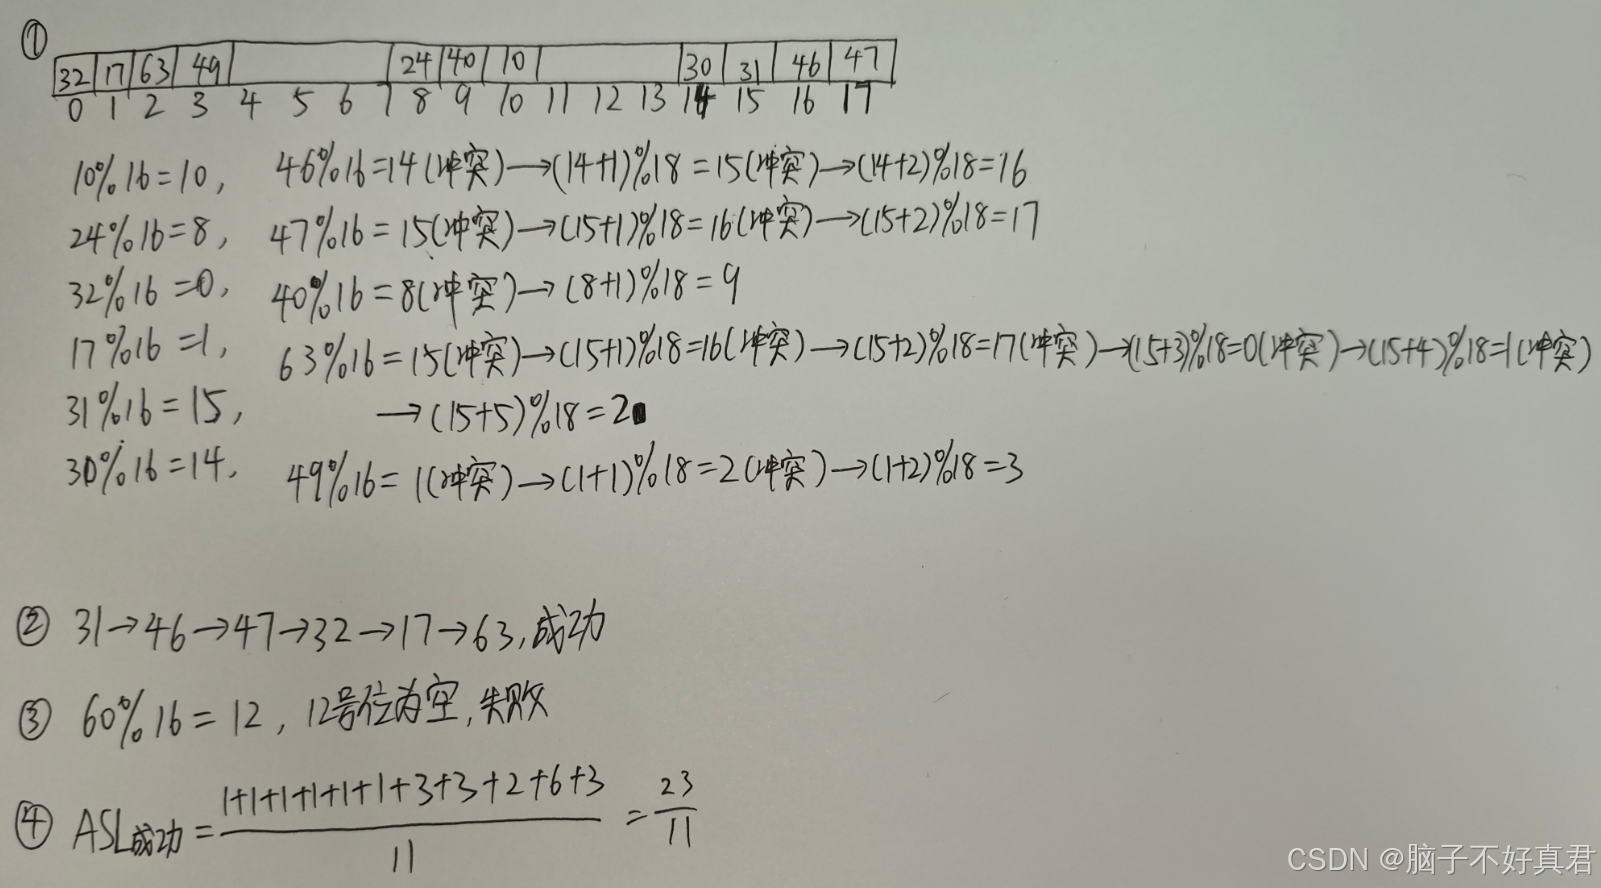 ①
32 17 63 49 24 40 10 30 31 46 47
0 1 2 3 4 5 6 7 8 9 10 11 12 13 14 15 16 17
10%16=10, 46%16=14(冲突)→(14+1)%18=15(冲突)→(14+2)%18=16
24%16=8, 47%16=15(冲突)→(15+1)%18=16(冲突)→(15+2)%18=17
32%16=0, 40%16=8(冲突)→(8+1)%18=9
17%16=1, 63%16=15(冲突)→(15+1)%18=16(冲突)→(15+2)%18=17(冲突)→(15+3)%18=0(冲突)→(15+4)%18=1(冲突)
31%16=15, →(15+5)%18=2
30%16=14, 49%16=1(冲突)→(1+1)%18=2(冲突)→(1+2)%18=3
② 31→46→47→32→17→63,成功
③ 60%16=12, 12号位为空,失败
④ ASL成功=(1+1+1+1+1+1+3+3+2+6+3)/11=23/11
CSDN @脑子不好真君